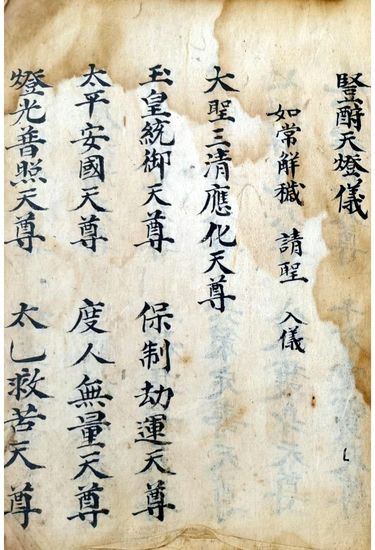 豎酧天燈儀
如常解穢 請聖 入儀
大聖三清應化天尊
玉皇統御天尊 保制劫運天尊
太平安國天尊 度人無量天尊
燈光普照天尊 太乙救苦天尊